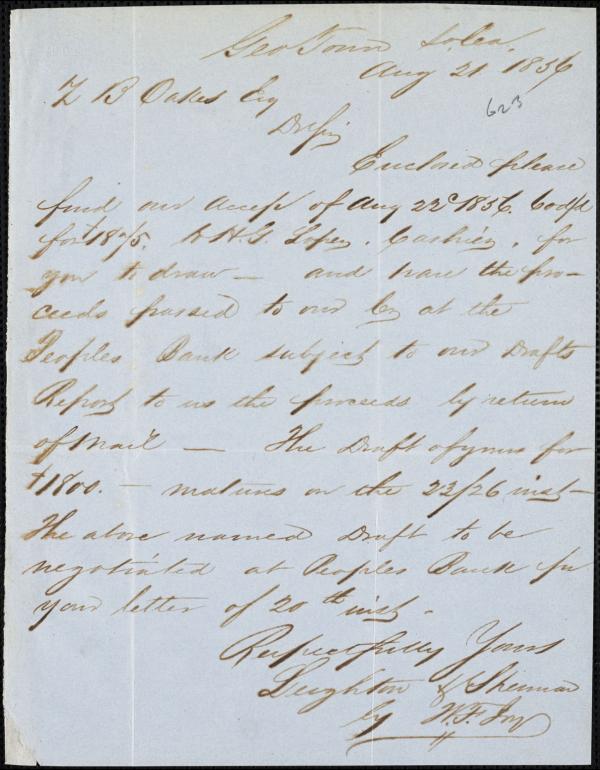 Geo Town So. Ca.
Aug 21 1856
Z B Oakes Esq
623
Dr Sir
Enclosed please
find our accept of Aug 22d 1856. 60 d/d
for $18 /5. to H. G. Loper, Cashier, for
you to draw — and have the pro-
ceeds passed to our Cr at the
Peoples Bank subject to our Drafts
Report to us the proceeds by return
of Mail — The Draft of yours for
$1800. — matures on the 23/26 inst —
The above named Draft to be
negotiated at Peoples Bank per
your letter of 20th inst —
Respectfully Yours
Leighton & Sherman
by W. F. Joy